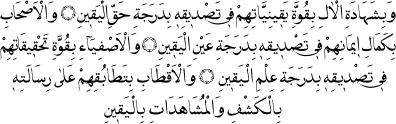 وَبِشَهَادَةِ الْاٰلِ بِقُوَّةِ يَقِينِيَّاتِهِمْ فِى تَصْدِيقِهِ بِدَرَجَةِ حَقِّ الْيَقِينِ ۞ وَالْاَصْحَابِ
بِكَمَالِ اِيمَانِهِمْ فِى تَصْدِيقِهِ بِدَرَجَةِ عَيْنِ الْيَقِينِ ۞ وَالْاَصْفِيَاءِ بِقُوَّةِ تَحْقِيقَاتِهِمْ
فِى تَصْدِيقِهِ بِدَرَجَةِ عِلْمِ الْيَقِينِ ۞ وَالْاَقْطَابِ بِتَطَابُقِهِمْ عَلٰى رِسَالَتِهِ
بِالْكَشْفِ وَالْمُشَاهَدَاتِ بِالْيَقِينِ